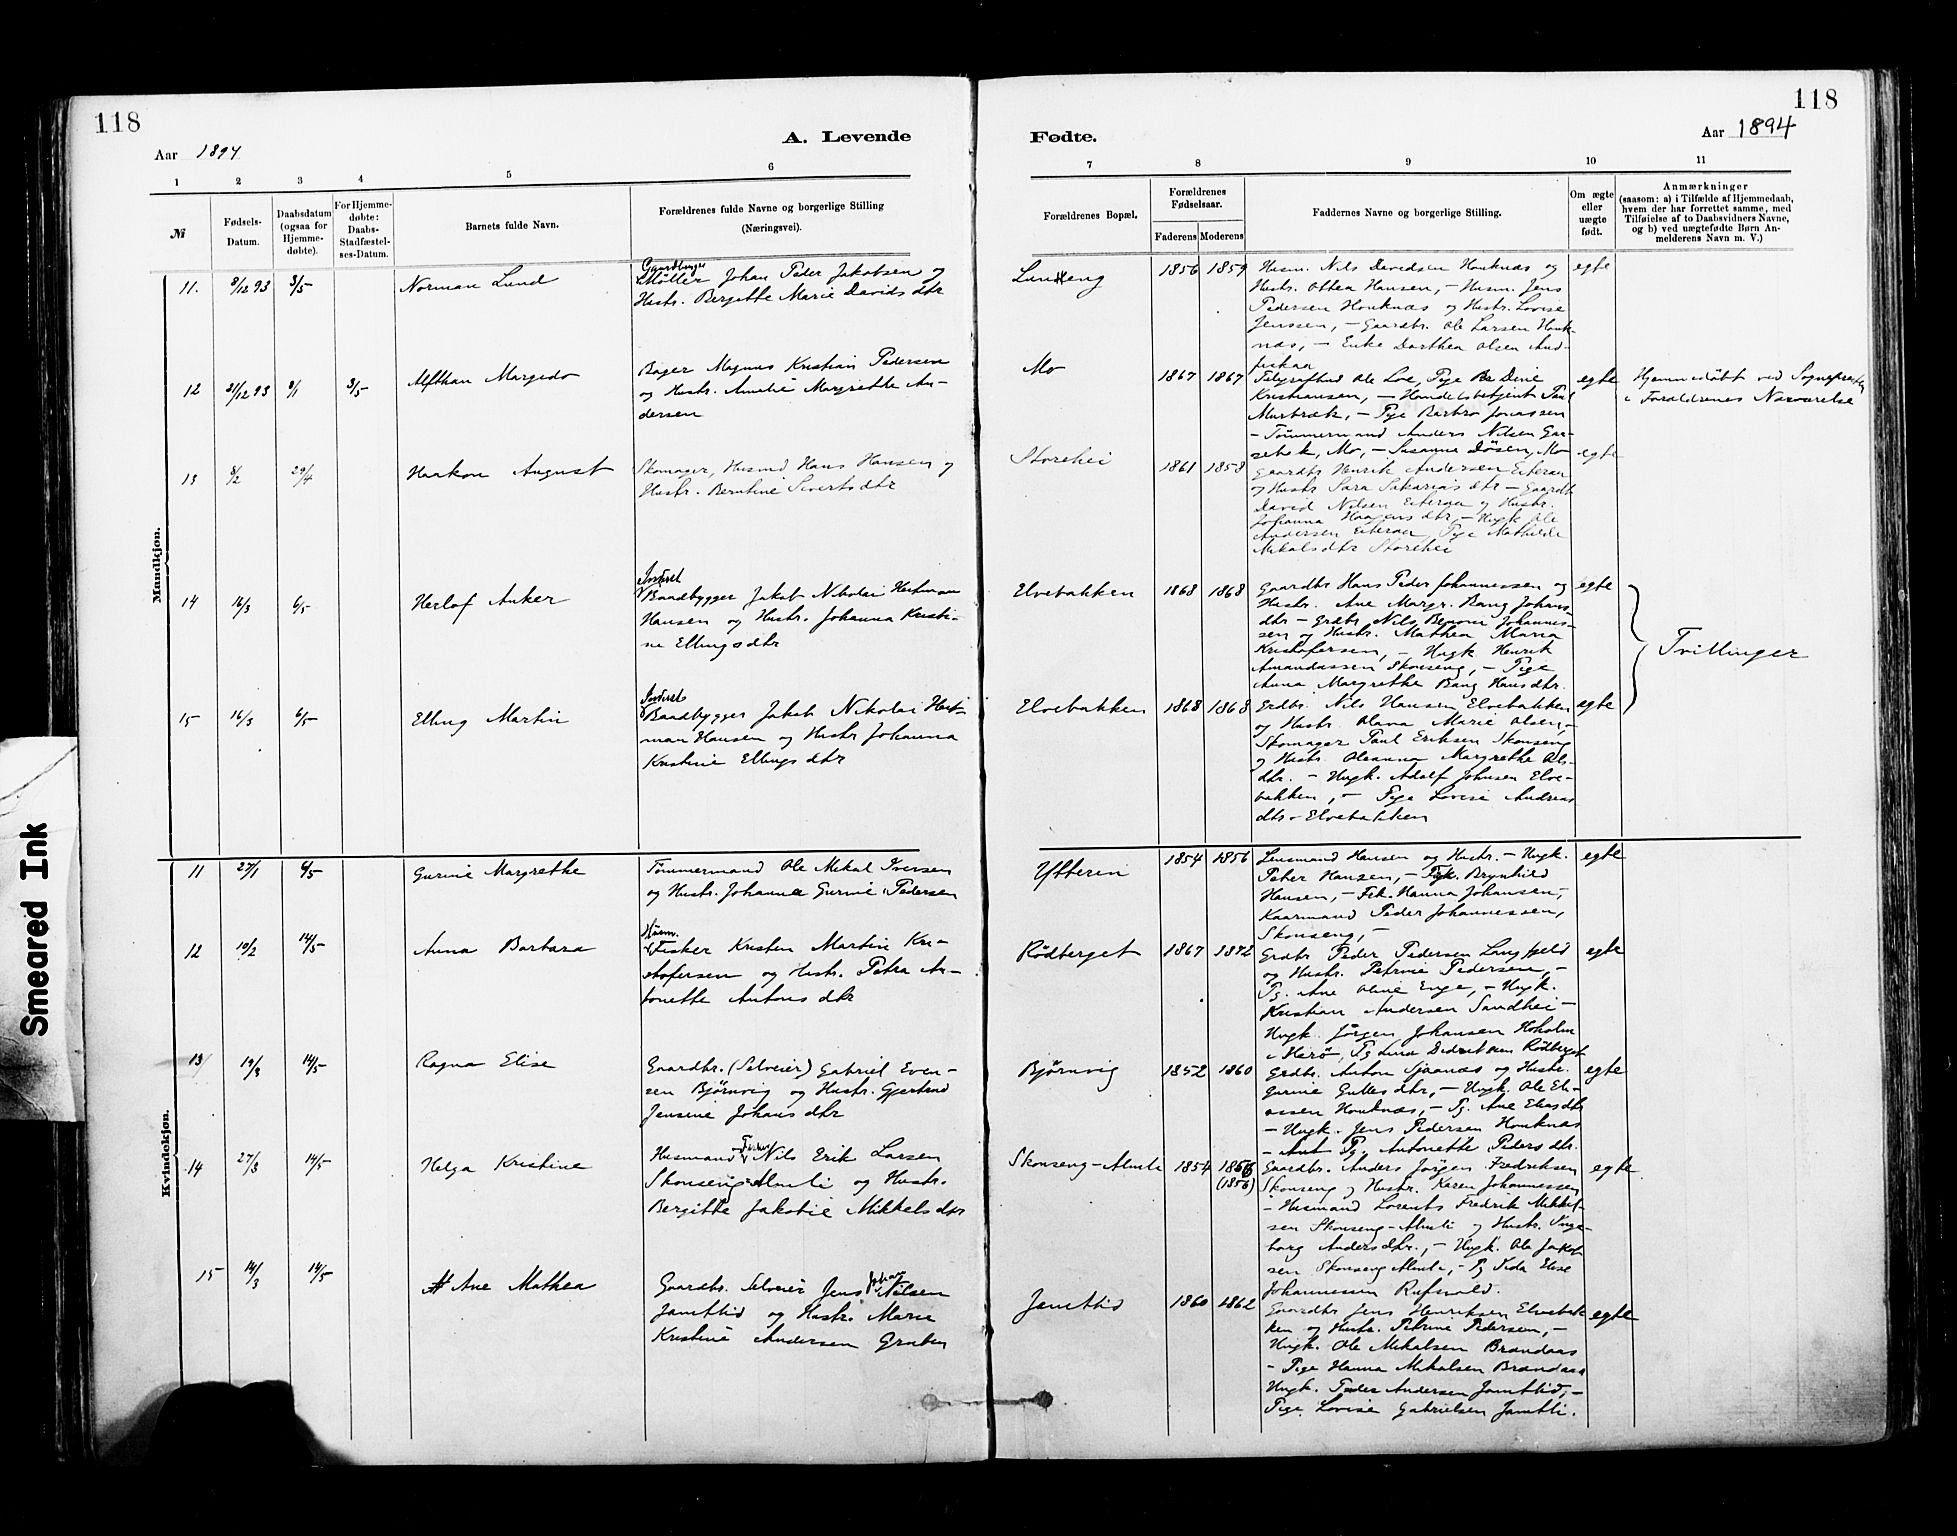 118
118
A. Levende
Fødte.
Aar 1894
Aar 1894
1 2 3 4 5 6
7 8 9 10 11
№
Fødsels-
Datum.
Daabsdatum
(ogsaa for
Hjemme-
døbte).
For Hjemme-
døbte:
Daabs-
Stadfæstel-
ses-Datum.
Barnets fulde Navn.
Forældrenes fulde Navne og borgerlige Stilling
(Næringsvei).
Forældrenes Bopæl.
Forældrenes
Fødselsaar.
Faderens Moderens
Faddernes Navne og borgerlige Stilling.
Om ægte
eller
uægte
født.
Anmærkninger
(saasom: a) i Tilfælde af Hjemmedaab,
hvem der har forrettet samme, med
Tilføielse af to Daabsvidners Navne,
og b) ved uægtefødte Børn An-
melderens Navn m. V.)
Mandkjøn.
11. 8/12 93 3/5 Norman Lund
Johan Peder Jakobsen og
Hustr. Bergitte Marie Davidsdtr
1856 1859 egte
Husm. Nils Davidsen Honknæs og
Hustr. Othea Hansen, - Husm. Jens
Pedersen Honknæs og Hustr. Lovise
Jenssen, - Gaardbr. Ole Larsen Honk-
næs, - Enke Dorthea Olsen And-
fiskaa
12 21/12 93 3/5
Bager Magnus Kristian Pedersen
og Hustr. Amalie Margrethe An-
dersen
Mo 1867 1867 egte
Telegrafbud Ole Loe, Pige
Kristiansen, - Handelsbetjent Paul
- Pige Barbro Jonassen
- Tømmermand Anders Nilsen
Mo, - Susanna Mo
Hjemmedøbt ved Sognepresten
i Forældrenes Nærværelse
13 8/2 29/4 Haakon August
Skomager, Husmd Hans Hansen og
Hustr. Berntine Sivertsdtr
Storehei 1861 1858 egte
Gaardbr Henrik Andersen Eiteraa
og Hustr Sara Sakariasdtr - Gaardbr
David Nilsen Eiteraa og Hustr.
Johanna Haagensdtr, - Ungk Ole
Andersen Eiteraa, Pige Mathilde
Mikalsdtr Storehei
14 16/3 6/5 Herlof Anker
Inderst
Baadbygger Jakob Nikolai Hertman
Hansen og Hustr. Johanna Kristi-
ne Ellingsdtr
Elvebakken 1868 1868 egte
Gaardbr Hans Peder Johannessen og
Hustr. Ane Margr. Bang Johans-
dtr - Grdbr Nils Benoni Johannes-
sen og Hustr. Mathea Maria
Kristofersen, - Ungk Henrik
Amandassen Skonseng, - Pige
Anna Margrethe Bang Hansdtr.
Tvillinger
15 16/3 6/5 Elling Martin
Inderst
Baadbygger Jakob Nikolai Hert-
man Hansen og Hustr Johanna
Kristine Ellingsdtr
Elvebakken 1868 1868 egte
Grdbr. Nils Hansen Elvebakken
og Hustr. Olava Marie Olsen, -
Skomager Paul Eriksen Skonseng
og Hustr. Oleanna Margrethe Ols-
dtr. - Ungk. Adolf Johnsen Elve-
bakken, - Pige Lovise Andreas
dtr - Elvebakken
Kvindekjøn.
11 27/1 6/5 Gurine Margrethe
Tømmermand Ole Mikal Iversen
og Hustr. Johanna Gurine Pedersen
Ytteren 1854 1856 egte
Lensmand Hansen og Hustr. - Ungk.
Peter Hansen, - Frk. Brynhild
Hansen, - Frk. Hanna Johansen, -
Kaarmand Peder Johannessen,
Skonseng, -
12 10/2 14/5 Anna Barbara
Husm.
Fisker Kristen Martin Kri-
stofersen og Hustr. Petra An-
tonette Antonsdtr
Rödberget 1867 1872 egte
Grdbr Peder Pedersen Langfjeld
og Hustr. Petrine Pedersen, -
Pg. Ane Oline Enge, - Ungk.
Kristian Andersen Sandhei -
Ungk. Jörgen Johansen Hoholm
i Herö, Pg Lina Didriksen Rödberget
13 19/3 14/5 Ragna Elise
Gaardbr. (Selveier) Gabriel Even-
sen Bjørnvig og Hustr. Gjertrud
Jensine Johansdtr
Bjørnvig 1852 1860 egte
Grdbr. Anton Sjaanæs og Hustr.
Gurine Guttesdtr, - Ungk. Ole Eli-
assen Honknæs, - Pg. Ane Eliasdtr
- Ungk. Jens Pedersen Honknæs
- Pg. Antonette Pedersdtr.
14 27/3 14/5 Helga Kristine
Husmand Fisker Nils Erik Larsen
Skonseng-Almli og Hustr.
Bergitte Jakobie Mikkelsdtr
Skonseng-Almli 1854 1856
(1856)
egte
Gaardbr. Anders Jörgen Fredriksen
Skonseng og Hustr. Karen Johannessen
- Husmand Lorents Fredrik Mikkel-
sen Skonseng-Almli og Hustr. Inge-
borg Andersdtr., - Ungk. Ole Jakob-
sen Skonseng Almli, - Pg Elise
Johannessen
15 14/3 14/5 Ane Mathea
Gaardbr. Selveier Jens Johan Nilsen
Jamtlid og Hustr. Marie
Kristine Andersen Gruben
Jamtlid 1860 1862 egte
Gaardbr Jens Henriksen Elvebak-
ken og Hustr. Petrine Pedersen, -
Ungk. Ole Mikalsen Brandaas
- Pige Hanna Mikalsen Brandaas
Ungk. Peder Andersen Jamtlid, -
Pige Lovise Gabrielsen Jamtli.
Smeared Ink